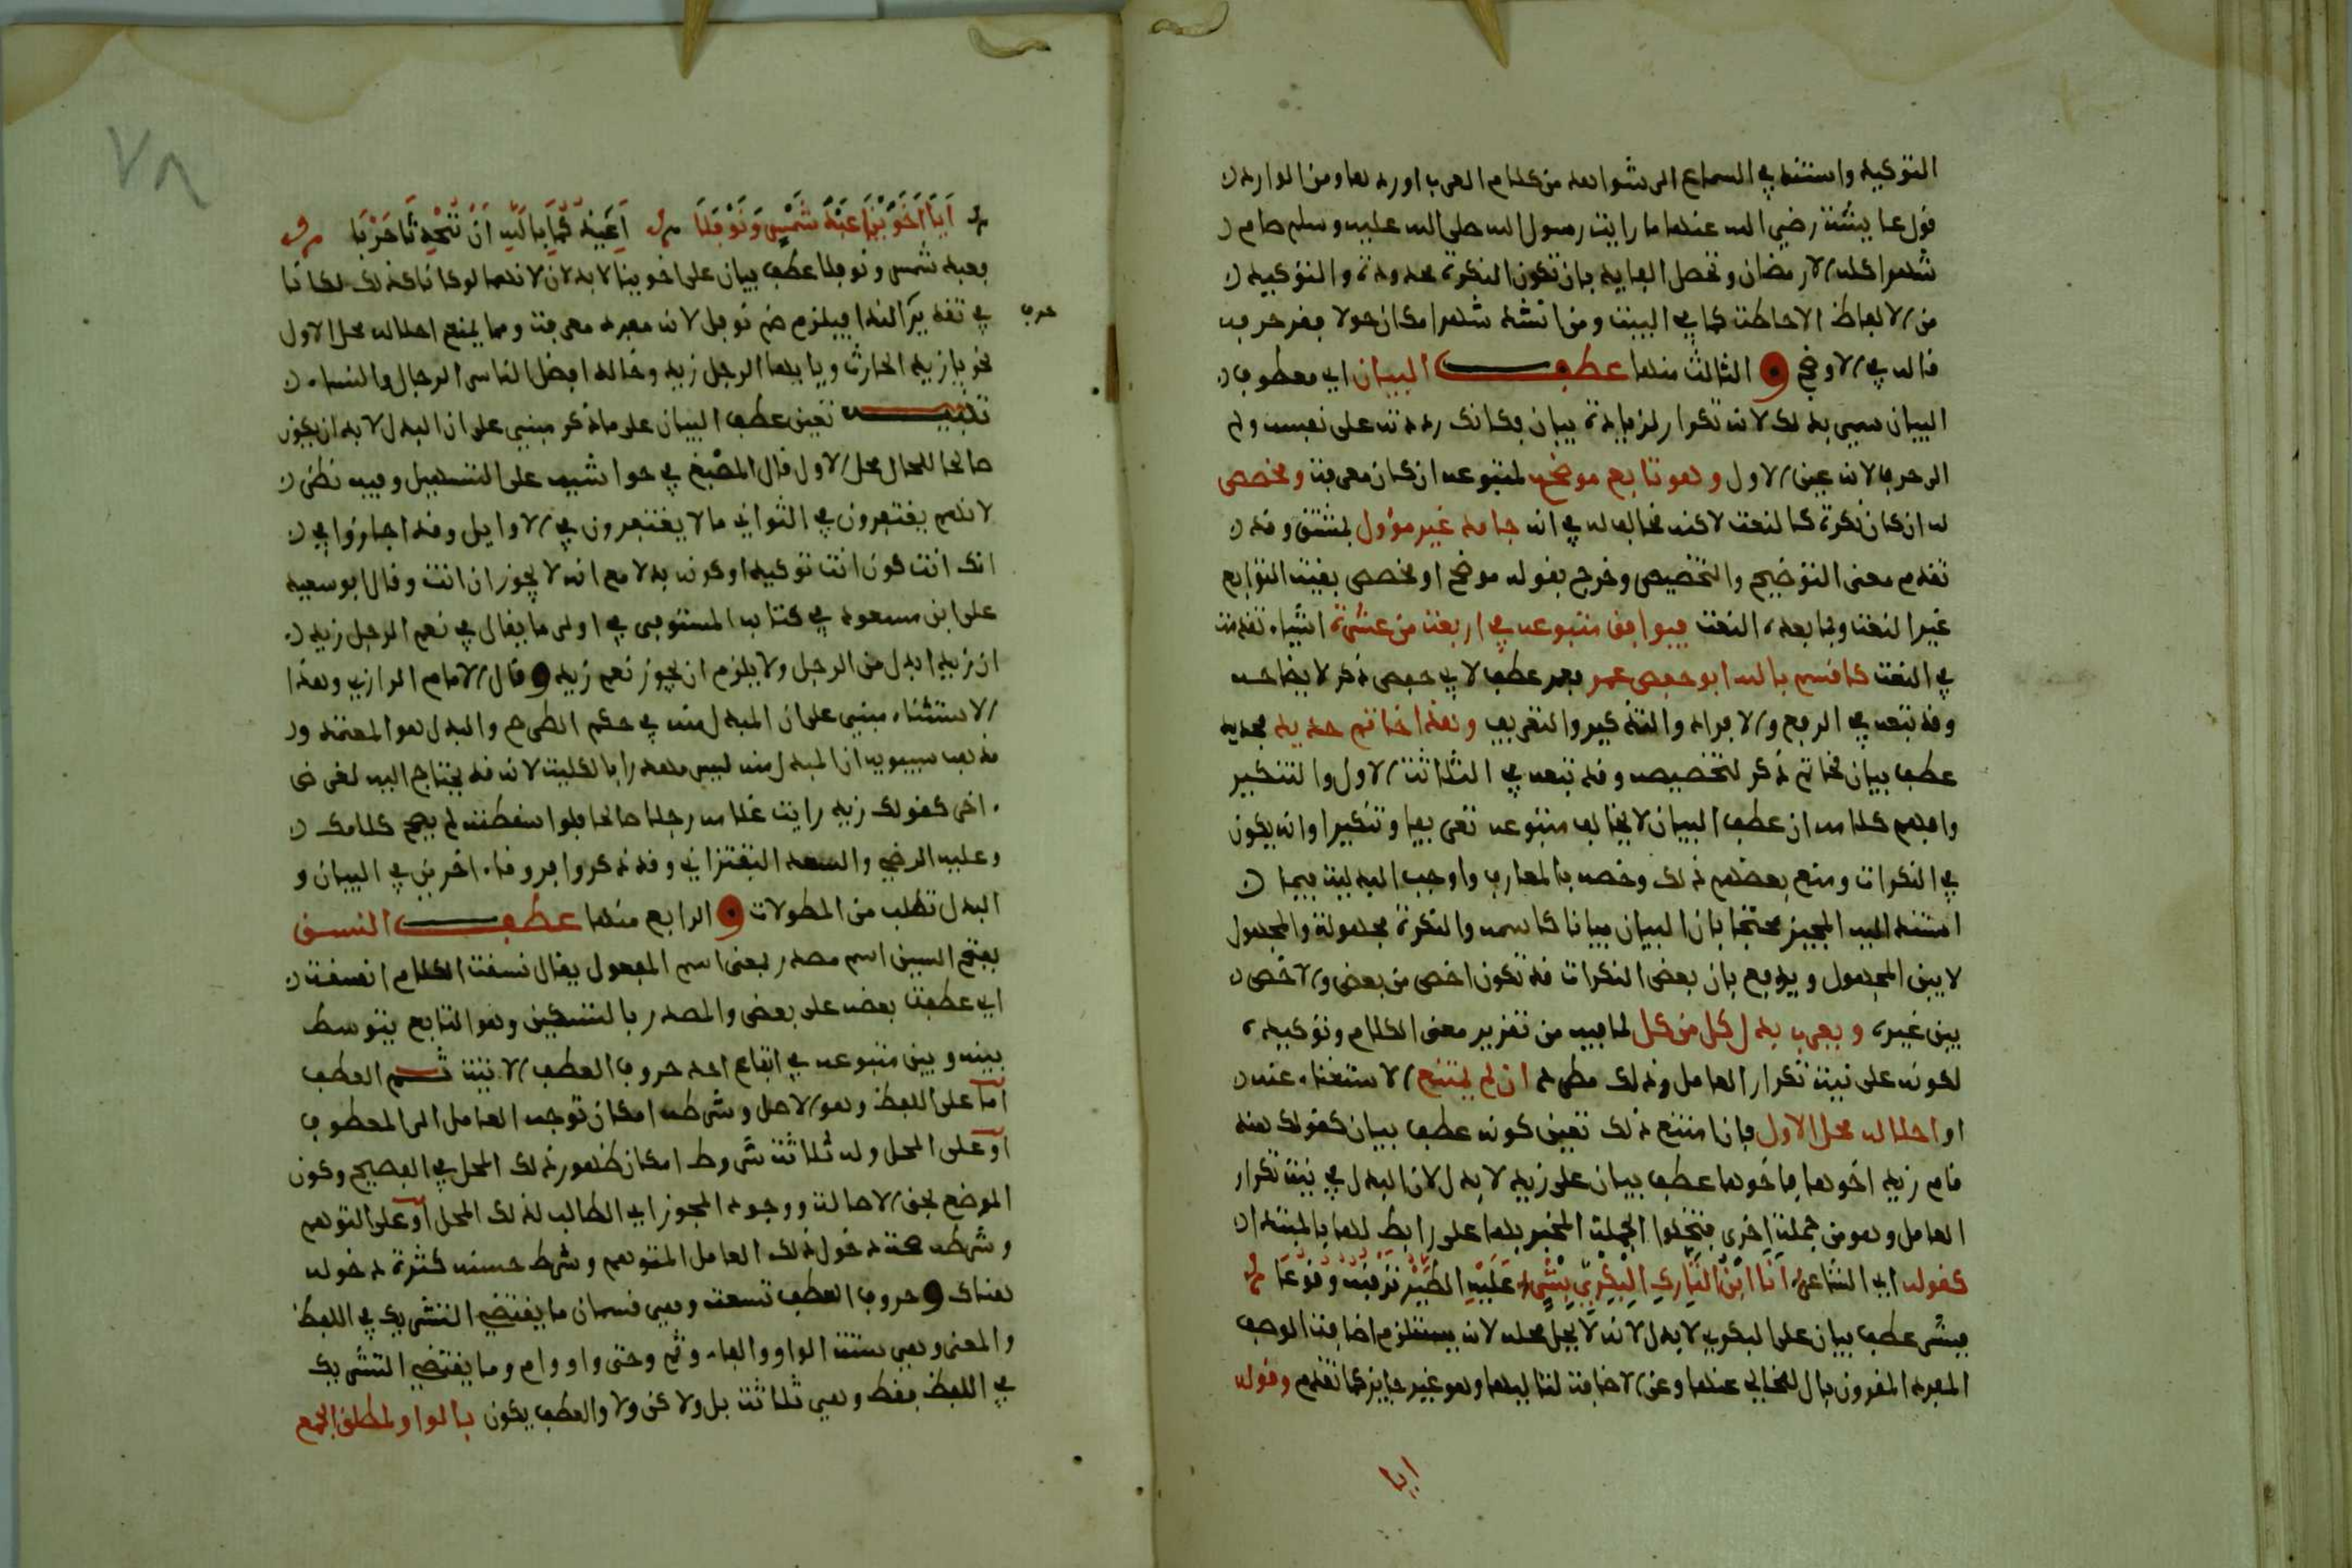 التوكيد واستند في السماع الى شواهد من كلام العرب اورد هاومن الوارد
قول عايشة رضي الله عنها ما رايت رسول الله صلى الله عليه وسلم صام
شهرا كله الا رمضان وتحصل الفايدة بان تكون النكرة محدودة والتوكيد
من الالفاظ الاحاطة كما في البيت ومن انشد شهرا مكان حولا فقد حرفه
قاله في الاوضح الثالث منها عطف البيان اي معطوف
البيان سمي بذلك لانه تكرار لزيادة بيان فكانك رددته على نفسه ولم
الى حرف لانه عين الاول وهو تابع موضح لمتبوعه ان كان معرفة ومخصص
له ان كان نكرة كالنعت لاكنه مخالف له في انه جامد غير مؤول بمشتق وقد
تقدم معنى التوضيح والتخصيص وخرج بقوله موضح او مخصص بقية التوابع
غير النعت وبما بعده النعت فيوافق متبوعه في اربعة من عشرة اشياء تقدمت
في النعت كاقسم بالله ابو حفص عمر فعمر عطف لابي حفص ذكر لايضاحه
وقد تبعه في الرفع والافراد والتذكير والتعريف وهذا خاتم حديد فحديد
عطف بيان لخاتم ذكر لتخصيصه وقد تبعه في الثلاثة الاول والتنكير
وافهم كلامه ان عطف البيان لا يخالف متبوعه تعريفا وتنكيرا وانه يكون
في النكرات ومنع بعضهم ذلك وخصه بالمعارف واوجب البدلية فيما
استند اليه المجيز محتجا بان البيان بيانا كاسمه والنكرة مجهولة والمجهول
لا يبين المجهول ويدفع بان بعض النكرات قد تكون اخص من بعض والاخص
يبين غيره ويعرب بدل كل من كل لما فيه من تقرير معنى الكلام وتوكيده
لكونه على نية تكرار العامل وذلك مطرد ان لم يمتنع الاستغناء عنه
او احلاله محل الاول فان امتنع ذلك تعين كونه عطف بيان كقولك هند
قام زيد اخوها فاخوها عطف بيان على زيد لا بدل لان البدل في نية تكرار
العامل وهو من جملة اخرى فتخلوا الجملة المخبر بها على رابط لها بالمبتدا
كقوله اي الشاعر انا ابن التارك البكري بشر عليه الطير ترقبه وقوعا
فبشر عطف بيان على البكري لا بدل لانه لا يحل محله لانه يستلزم اضافة الوصف
المفرد المقرون بال للخالي عنها وعن الاضافة لتاليها وهو غير جايز كما تقدم وقوله
ايا
٧٨
ايا اخوينا عبد شمس ونوفلا اعيذكما بالله ان تحدثا حربا
فعبد شمس ونوفلا عطف بيان على اخوينا لا بدلان لانهما لو كانا كذلك لكانا
في تقدير النداء فيلزم ضم نوفل لانه مفرد معرفة ومما يمنع احلاله محل الاول
حرف
نحو يا زيد الحارث ويا ايها الرجل زيد وخالد افضل الناس الرجال والنساء
تنبيه تعين عطف البيان على ما ذكر مبني على ان البدل لا بد ان يكون
صالحا للحال محل الاول قال المصنف في حواشيه على التسهيل وفيه نظر
لانهم يغتفرون في الثواني ما لا يغتفرون في الاوايل وقد اجازوا في
انك انت كون انت توكيد او كونه بدلا مع انه لا يجوز ان انت وقال ابو سعيد
على ابن مسعود في كتابه المستوفى في اولى ما يقال في نعم الرجل زيد
ان زيد ابدل من الرجل ولا يلزم ان يجوز نعم زيد وقال الامام الرازي وهذا
الاستثناء مبني على ان المبدل منه في حكم الطرح والبدل هو المعتمد و
مذهب سيبويه ان المبدل منه ليس مهدرا بالكلية لانه قد يحتاج اليه لغرض
اخر كقولك زيد رايت غلامه رجلا صالحا فلو اسقطته لم يصح كلامك
وعليه الرضي والسعد التفتزاني وقد ذكروا فروقا اخر بين في البيان و
البدل تطلب من المطولات الرابع منها عطف النسق
بفتح السين اسم مصدر بمعنى اسم المفعول يقال نسقت الكلام انسقه
اي عطفت بعضه على بعض والمصدر بالتسكين وهو التابع يتوسط
بينه وبين متبوعه في اتباع احد حروف العطف الاتية ثم العطف
اما على اللفظ وهو الاصل وشرطه امكان توجه العامل الى المعطوف
او على المحل وله ثلاثة شروط امكان ظهور ذلك المحل في الفصيح وكون
الموضع بحق الاصالة ووجود المجوز اي الطالب لذلك المحل او على التوهم
وشرطه صحة دخول ذلك العامل المتوهم وشرط حسنه كثرة دخوله
هناك وحروف العطف تسعة وهي قسمان ما يقتضي التشريك في اللفظ
والمعنى وهي ستة الواو والفاء وثم وحتى واو وام وما يقتضي التشريك
في اللفظ فقط وهي ثلاثة بل ولاكن ولا والعطف يكون بالواو لمطلق الجمع